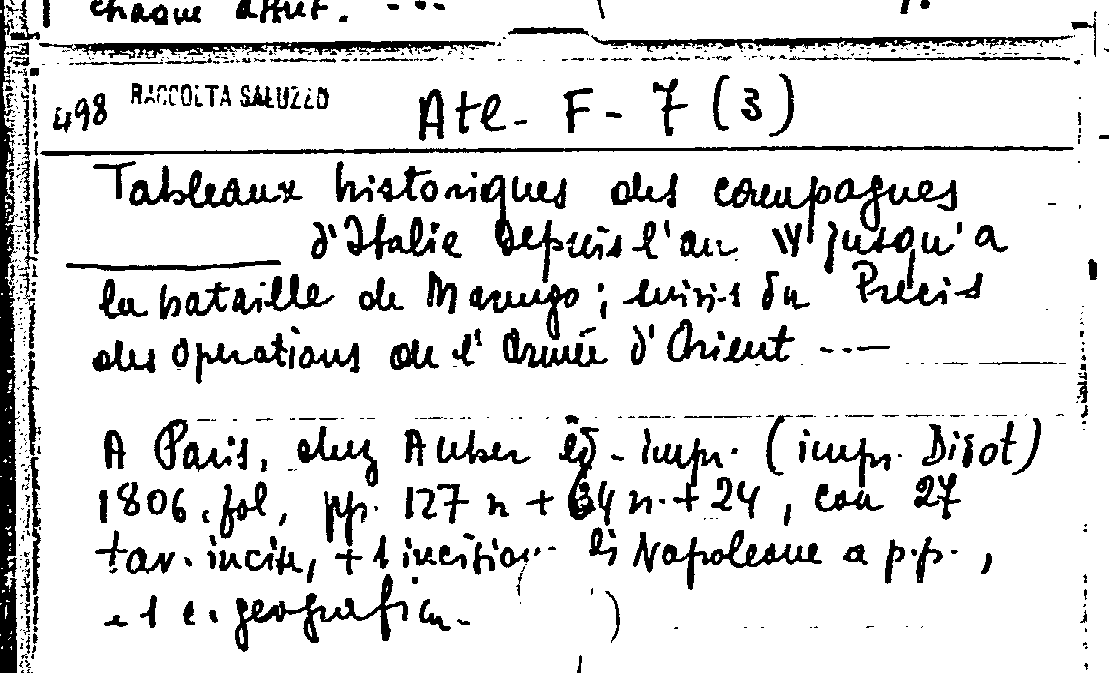 chaque affut. ---
498 RACCOLTA SALUZZO Atl- F- 7 (3)
Tableaux historiques des campagnes
d'Italie depuis l'an IV jusqu'a
la bataille de Marengo; suivis du Précis
des Operations de l'Armée d'Orient ---
A Paris, chez Auber éd- impr. (impr. Didot)
1806. fol, pp. 127 n + 64 n. + 24, con 27
tav. incise, + 1 incision. di Napoleone a p.p.,
e 1 c. geografica.